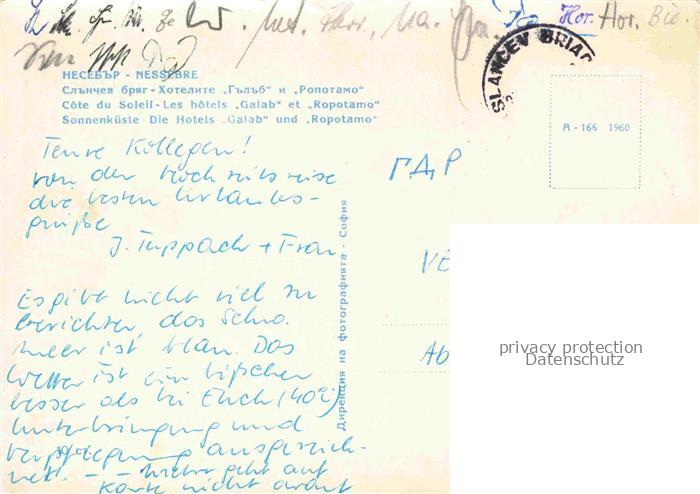 Hor. Hor. Bie.
SLANCEV BRIAG
НЕСЕБЪР - NESSEBRE
Слънчев бряг - Хотелите „Гълъб“ и „Ропотамо“
Côte du Soleil - Les hôtels „Galab“ et „Ropotamo“
Sonnenküste Die Hotels „Galab“ und „Ropotamo“
А - 166 1960
Teure Kollegen!
von der Hochzeitsreise
die besten Urlaubs-
grüße
J. Tuppach + Frau
Es gibt nicht viel zu
berichten, das Schw.
Meer ist blau. Das
Wetter ist ein bißchen
besser als bei Euch (40°)
Unterbringung und
Verpflegung ausgezeich-
net. - - Mehr geht auf
Karte nicht drauf
Дирекция на фотографията - София
ГДР
VE
Ab
privacy protection
Datenschutz